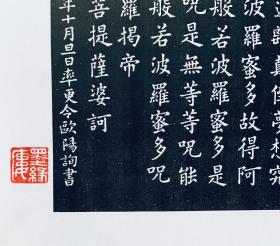 離顛倒夢想究
波羅蜜多故得阿
般若波羅蜜多是
呪是無等等呪能
般若波羅蜜多呪
羅揭帝
菩提薩婆訶
年十月旦日率更令歐陽詢書
墨緣